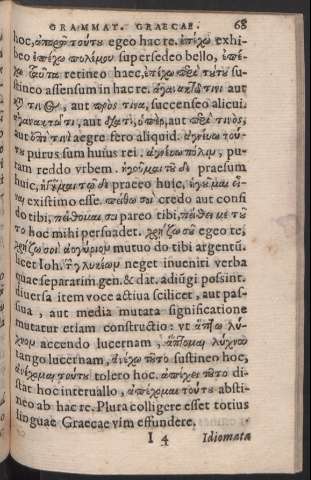 GRAMMAT. GRAECAE. 68
hoc, ἀπορῶ τούτȣ egeo hac re. ἐπέχω exhi-
beo ἐπέχω πολέμου supersedeo bello, ἐπέ-
χω ταῦτα retineo haec, ἐπέχω περὶ τȣ́τȣ su-
stineo assensum in hac re. ἀγανακτῶ τινι aut
τινα, succenseo alicui.
ἀγανακτῶ τι, aut
aut ἐπί τινι aegre fero aliquid. ἁγνεύω τού-
τȣ purus sum huius rei. ἁγνεύω πόλιν, pu-
tam reddo vrbem. ἡγοῦμαι τȣ͂ δε praesum
huic, ἡγȣ͂μαι τῷ δε praeeo huic, ἡγȣ͂μαι εἶ-
ναι existimo esse. πείθω σοι credo aut confi
do tibi, πείθομαι σοι pareo tibi, πείθει με τȣ͂
το hoc mihi persuadet. χρῄζω σȣ͂ egeo te,
χρῄζω σοι ἀργύριον mutuo do tibi argentũ.
licet Ioh. neget inueniri verba
quae separatim gen. & dat. adiũgi possint.
diuersa item voce actiua scilicet, aut pas-
siua, aut media mutata significatione
mutatur etiam constructio: vt ἅπτω λύ-
χνον accendo lucernam, ἅπτομαι λύχνου
tango lucernam, ἀνέχω τȣ͂το sustineo hoc,
ἀνέχομαι τούτȣ tolero hoc. ἀπέχει τȣ͂το di-
stat hoc interuallo, ἀπέχομαι τούτȣ absti-
neo ab hac re. Plura colligere esset totius
linguae Graecae vim effundere.
I 4 Idiomata